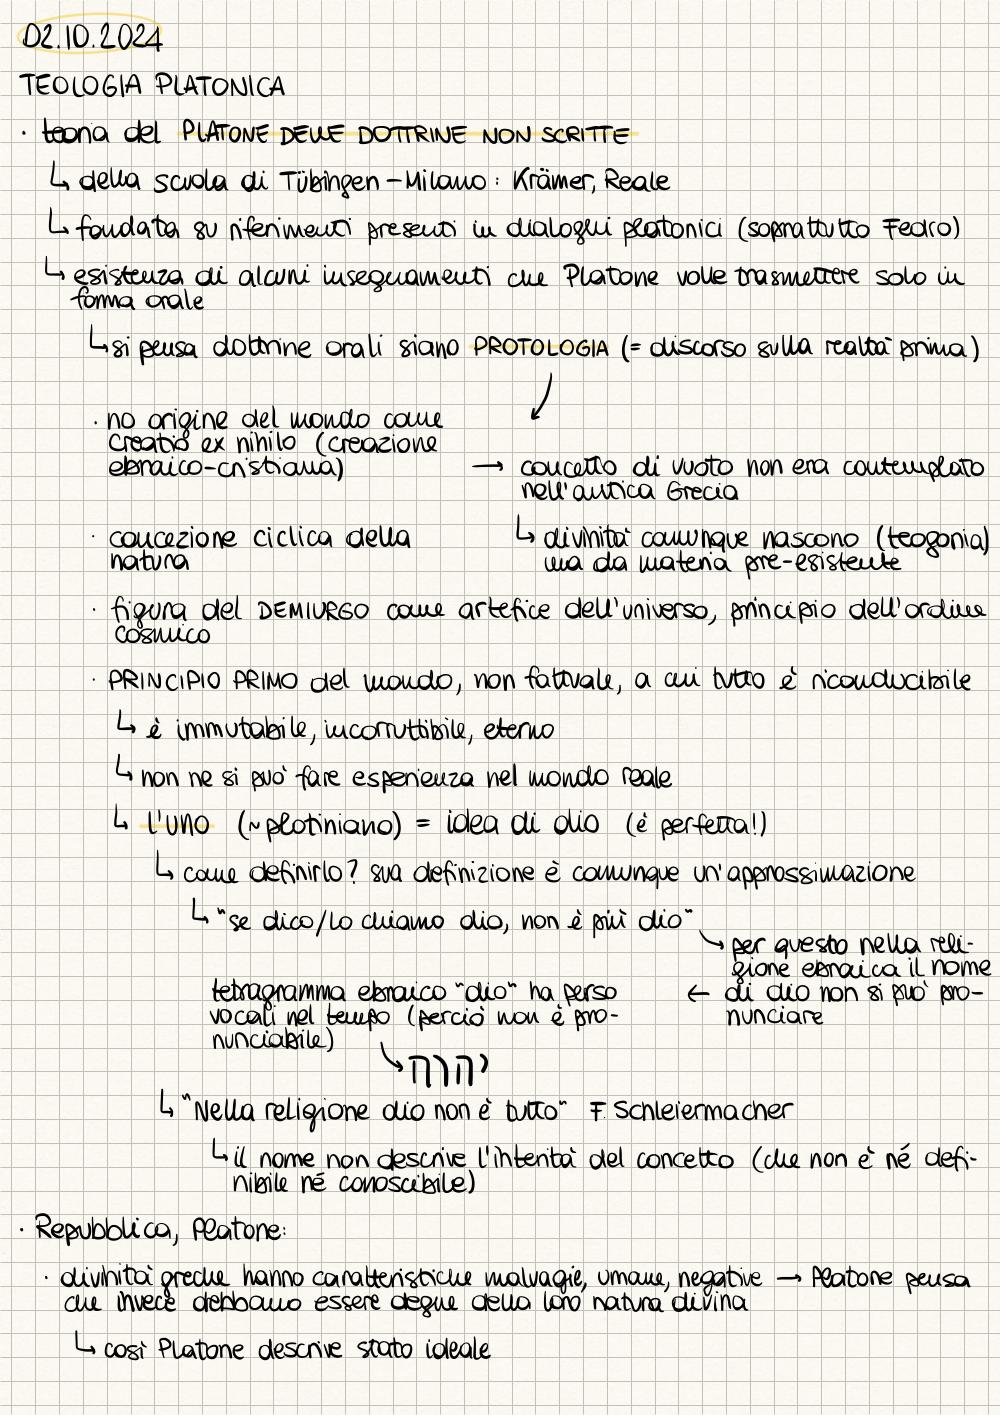 02.10.2024
TEOLOGIA PLATONICA
· teoria del PLATONE DELLE DOTTRINE NON SCRITTE
↳ della scuola di Tübingen – Milano: Krämer, Reale
↳ fondata su riferimenti presenti in dialoghi platonici (soprattutto Fedro)
↳ esistenza di alcuni insegnamenti che Platone volle trasmettere solo in
forma orale
↳ si pensa dottrine orali siano PROTOLOGIA (= discorso sulla realtà prima)
· no origine del mondo come
creatio ex nihilo (creazione
ebraico-cristiana)
→ concetto di vuoto non era contemplato
nell'antica Grecia
↳ divinità comunque nascono (teogonia)
ma da materia pre-esistente
· concezione ciclica della
natura
· figura del DEMIURGO come artefice dell'universo, principio dell'ordine
cosmico
· PRINCIPIO PRIMO del mondo, non fattuale, a cui tutto è riconducibile
↳ è immutabile, incorruttibile, eterno
↳ non ne si può fare esperienza nel mondo reale
↳ l'UNO (~plotiniano) = idea di dio (è perfetta!)
↳ come definirlo? sua definizione è comunque un'approssimazione
↳ "se dico/lo chiamo dio, non è più dio"
↘ per questo nella reli-
gione ebraica il nome
di dio non si può pro-
nunciare
← tetragramma ebraico "dio" ha perso
vocali nel tempo (perciò non è pro-
nunciabile)
↘ יהוה
↳ "Nella religione dio non è tutto" F. Schleiermacher
↳ il nome non descrive l'interità del concetto (che non è né defi-
nibile né conoscibile)
· Repubblica, Platone:
· divinità greche hanno caratteristiche malvagie, umane, negative → Platone pensa
che invece debbano essere degne della loro natura divina
↳ così Platone descrive stato ideale